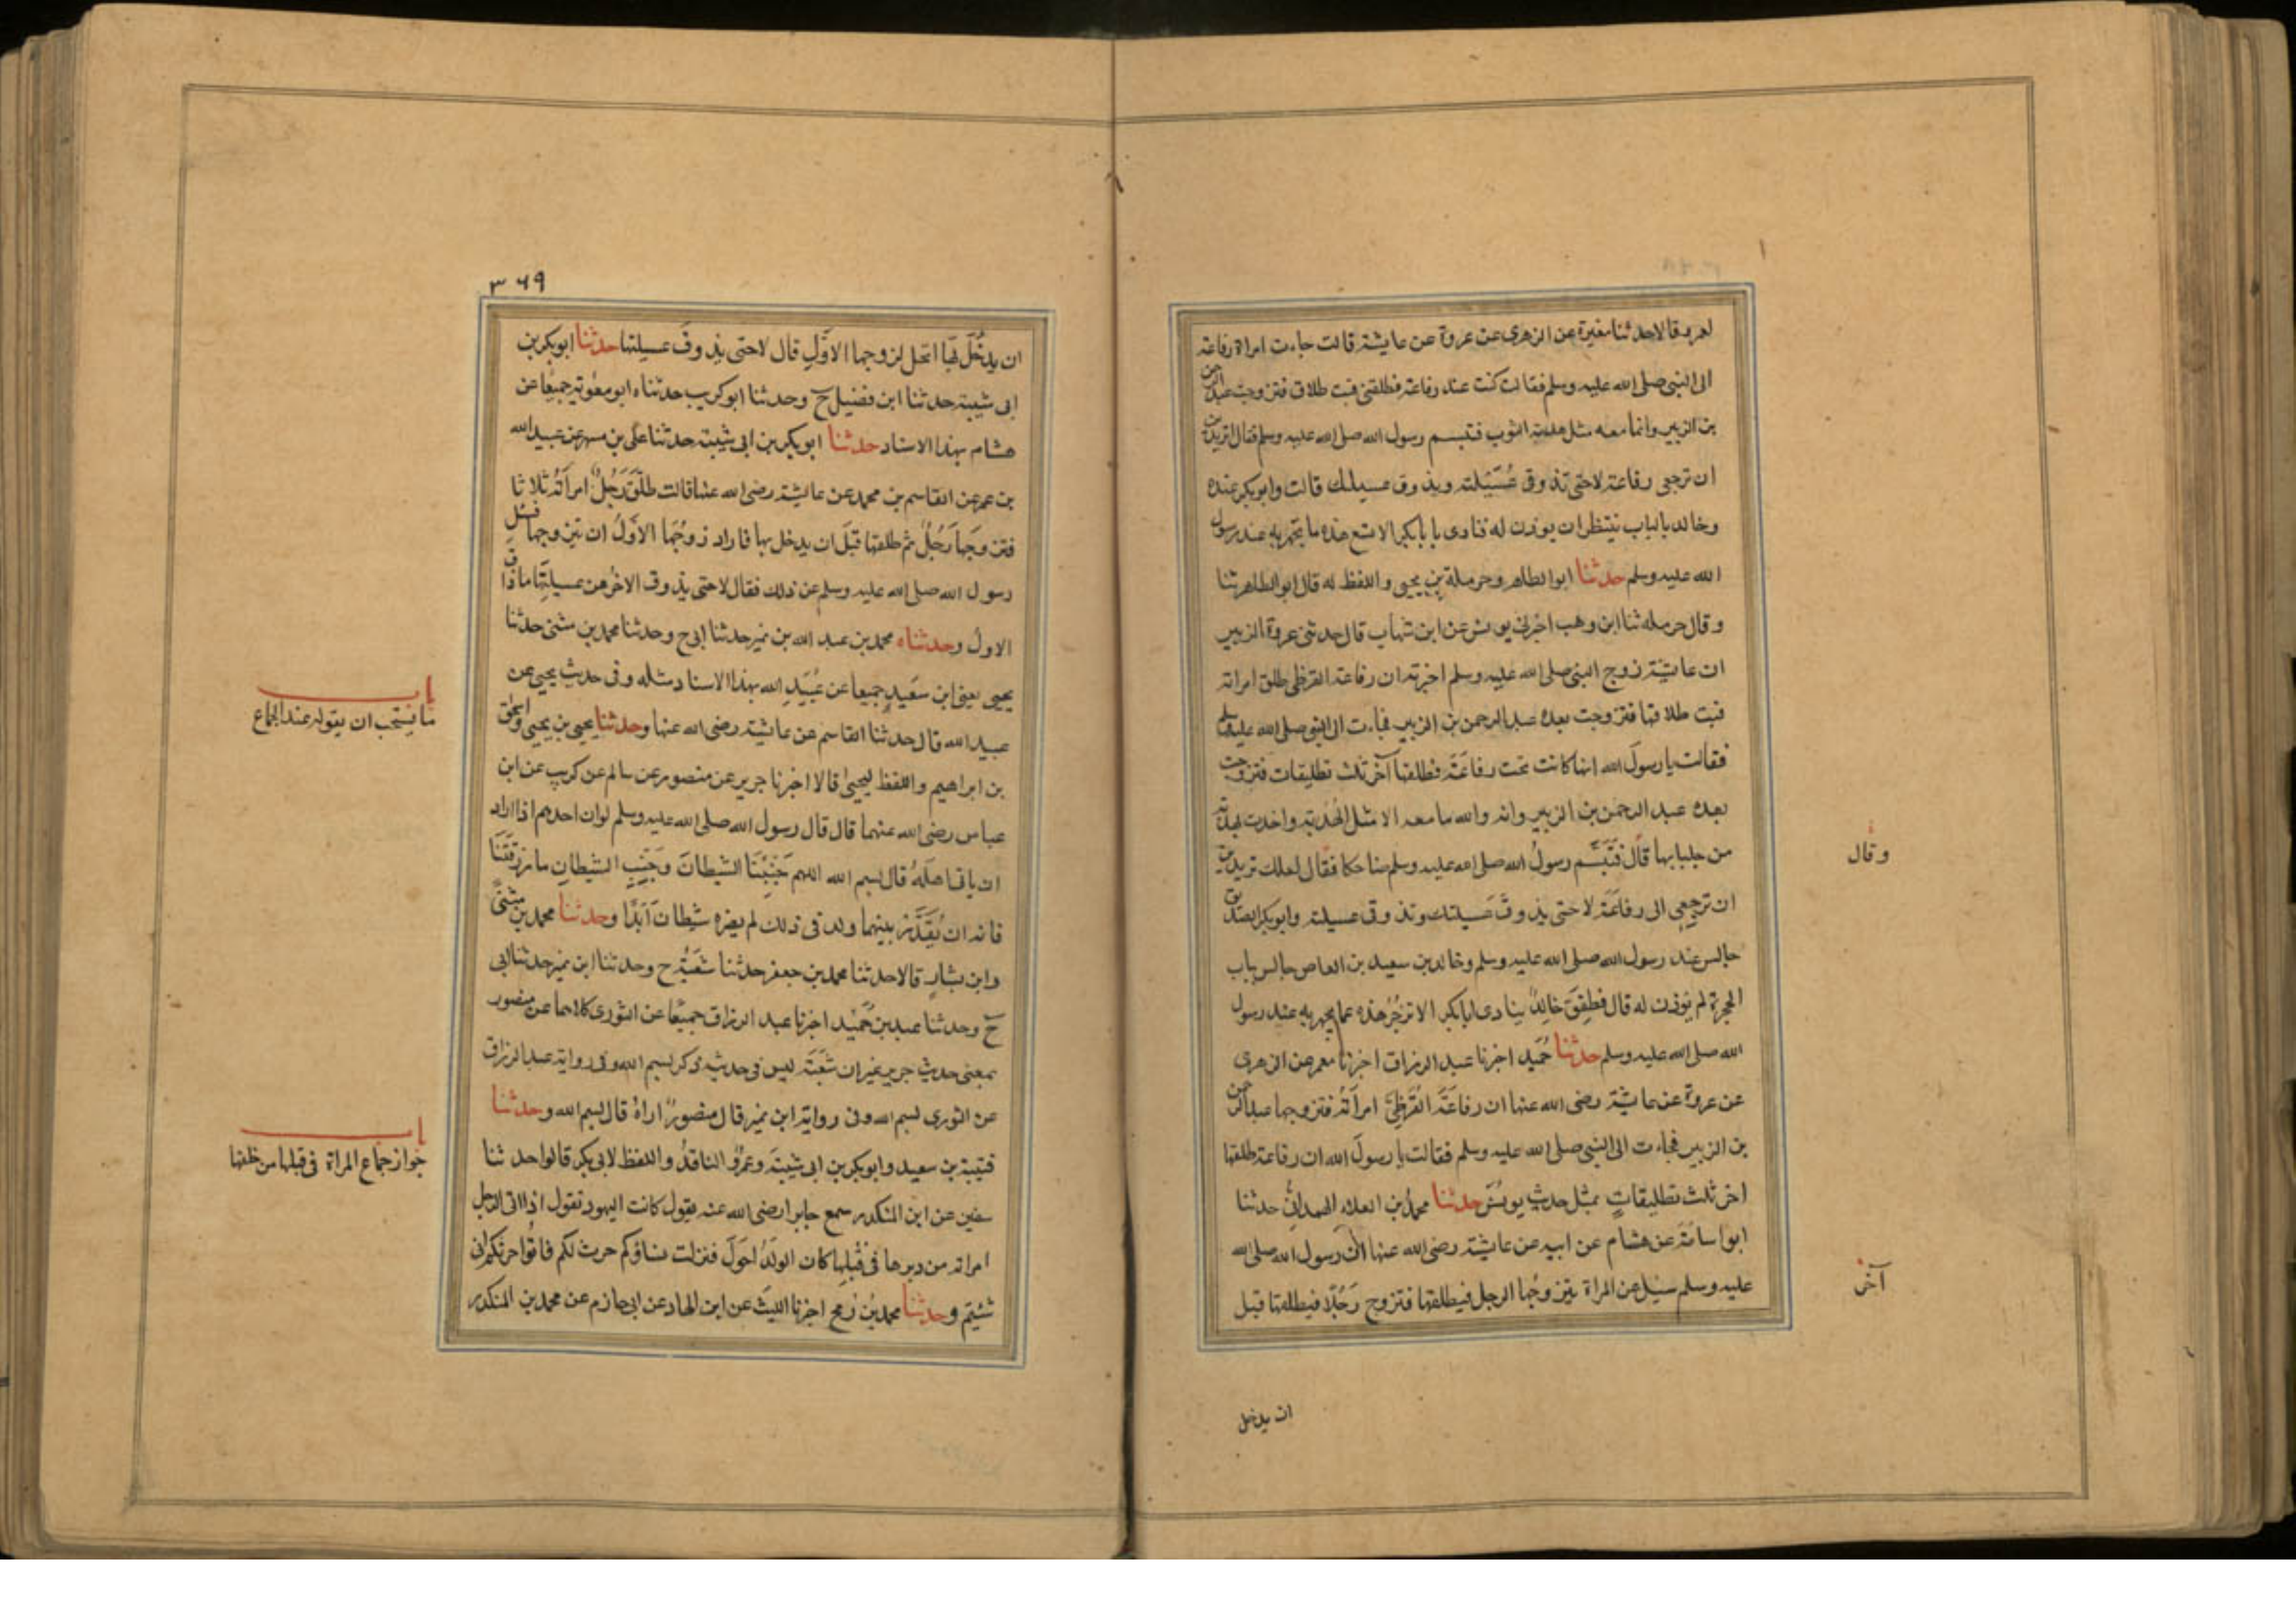 لعمرو قالا حدثنا سفين عن الزهرى عن عروة عن عايشة قالت جاءت امراة رفاعة
الى النبى صلى الله عليه وسلم فقالت كنت عند رفاعة فطلقنى فبت طلاقى فتزوجت عبد الرحمن
بن الزبير وانما معه مثل هدبة الثوب فتبسم رسول الله صلى الله عليه وسلم فقال اتريدين
ان ترجعى رفاعة لا حتى تذوقى عُسَيْلته ويذوق عسيلتك قالت وابو بكر عنده
وخالد بالباب ينتظر ان يوذن له فنادى يا بابكر الا تسمع هذه ما تجهر به عند رسول
الله عليه وسلم حدثنا ابو الطاهر وحرملة بن يحيى واللفظ له قال ابو الطاهر ثنا
وقال حرمله ثنا ابن وهب اخبرنى يونس عن ابن شهاب قال حدثنى عروة الزبير
ان عايشة زوج النبى صلى الله عليه وسلم اخبرته ان رفاعة القرظى طلق امراته
فبت طلاقها فتزوجت بعده عبد الرحمن بن الزبير فجاءت الى النبى صلى الله عليه وسلم
فقالت يا رسولَ الله انها كانت تحت رفاعَةَ فطلقها آخر ثلث تطليقات فتزوجت
بعده عبد الرحمن بن الزبير وانه والله ما معه الا مثل الهُدْبة واخذت بهدبة
من جلبابها قال فَتَبَسَّم رسولُ الله صلى الله عليه وسلم ضاحكا فقال لعلك تريدين
ان ترجعى الى رفاعَةَ لا حتى يذوقَ عسيلتك وتذوقى عسيلته وابو بكر الصديق
جالس عند رسول الله صلى الله عليه وسلم وخالد بن سعيد بن العاص جالس بباب
الحجرة لم يوذن له قال فطفِقَ خالدٌ ينادى ابا بكر الا تزجُرُ هذه عما تجهر به عند رسول
الله صلى الله عليه وسلم حدثنا حُمَيد اخبرنا عبد الرزاق اخبرنا معمر عن الزهرى
عن عروة عن عايشة رضى الله عنها ان رفاعَةَ القُرَظِىَّ امرأتَهُ فتزوجها عبد الرحمن
بن الزبير فجاءت الى النبى صلى الله عليه وسلم فقالت يا رسولَ الله ان رفاعة طلقها
اخر ثلث تطليقاتٍ بمثل حديثِ يونُسَ حدثنا محمدُ بن العلاء الهمدانىُّ حدثنا
ابو اسامَةَ عن هشام عن ابيه عن عايشة رضى الله عنها انّ رسول الله صلى الله
عليه وسلم سئِل عن المراة يتزوجُها الرجل فيطلقها فتزوج رَجُلًا فيطلقها قبل
وقال
آخر
ان يدخل
٣٦٩
ان يدخُلَ بها اتحل لزوجها الاوّلِ قال لا حتى يذوقَ عسيلتها حدثنا ابو بكر بن
ابى شيبة حدثنا ابن فضيل ح وحدثنا ابو كريب حدثناه ابو معٰوية جميعًا عن
هشام بهذا الاسناد حدثنا ابو بكر بن ابى شيبة حدثنا على بن مسهر عن عبيد الله
بن عمر عن القاسم بن محمد عن عايشة رضى الله عنها قالت طلّقَ رَجُلٌ امرأتَهُ ثلاثا
فتزوجَها رَجُلٌ ثم طلقها قبلَ ان يدخل بها فاراد زوجُها الاوّلُ ان يتزوجها فسُئِل
رسول الله صلى الله عليه وسلم عن ذلك فقال لا حتى يذوق الاخرُ من عسيلتِها ما ذاق
الاولُ وحدثناه محمد بن عبد الله بن نمير حدثنا ابى ح وحدثنا محمد بن مثنى حدثنا
يحيى يعنى ابن سَعيدٍ جميعا عن عُبَيدِ الله بهذا الاسناد مثله وفى حديثِ يحيى عن
عبيد الله قال حدثنا القاسم عن عائشة رضى الله عنها وحدثنا يحيى بن يحيى واسحٰق
بن ابراهيم واللفظ ليحيىٰ قالا اخبرنا جرير عن منصور عن سالم عن كريب عن ابن
عباس رضى الله عنهما قال قال رسول الله صلى الله عليه وسلم لو ان احدهم اذا اراد
ان ياتى اهلَهُ قال بسم الله اللهم جَنِّبْنَا الشيطانَ وجَنِّبِ الشيطانَ ما رزقتَنَا
فانه ان يُقَدَّر بينهما ولد فى ذلك لم يضره شيطانٌ أبدًا وحدثنا محمد بن مثنى
وابن بشارٍ قالا حدثنا محمد بن جعفر حدثنا شعْبَةُ ح وحدثنا ابن نمير حدثنا ابى
ح وحدثنا عبد بن حُمَيْد اخبرنا عبد الرزاق جميعًا عن الثورى كلاهما عن منصور
بمعنى حديثِ جرير غير ان شعْبَةَ ليس فى حديثه ذكر بسم الله وفى رواية عبد الرزاق
عن الثورى بسم الله وفى رواية ابن نمير قال منصورٌ اراهُ قال بسم الله وحدثنا
قتيبة بن سعيد وابو بكر بن ابى شيبَةَ وعمرٌو الناقدُ واللفظ لابى بكر قالوا حدثنا
سفين عن ابن المنكدر سمع جابرا رضى الله عنه يقول كانت اليهود تقول اذا اتى الرجل
امراته من دبرها فى قبُلِها كان الولدُ احوَلَ فنزلت نساؤكم حرث لكم فاتُوا حرثكم انى
شئتم وحدثنا محمد بن رُمح اخبرنا الليثُ عن ابن الهاد عن ابى حازم عن محمد بن المنكدر
باب
ما يستحب ان يقوله عند الجماع
باب
جواز جماع المراة فى قبلها من خلفها